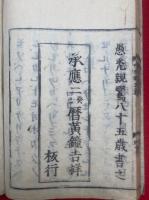 愚禿親鸞八十五歳書之
承應二癸巳暦黃鐘吉祥
板行